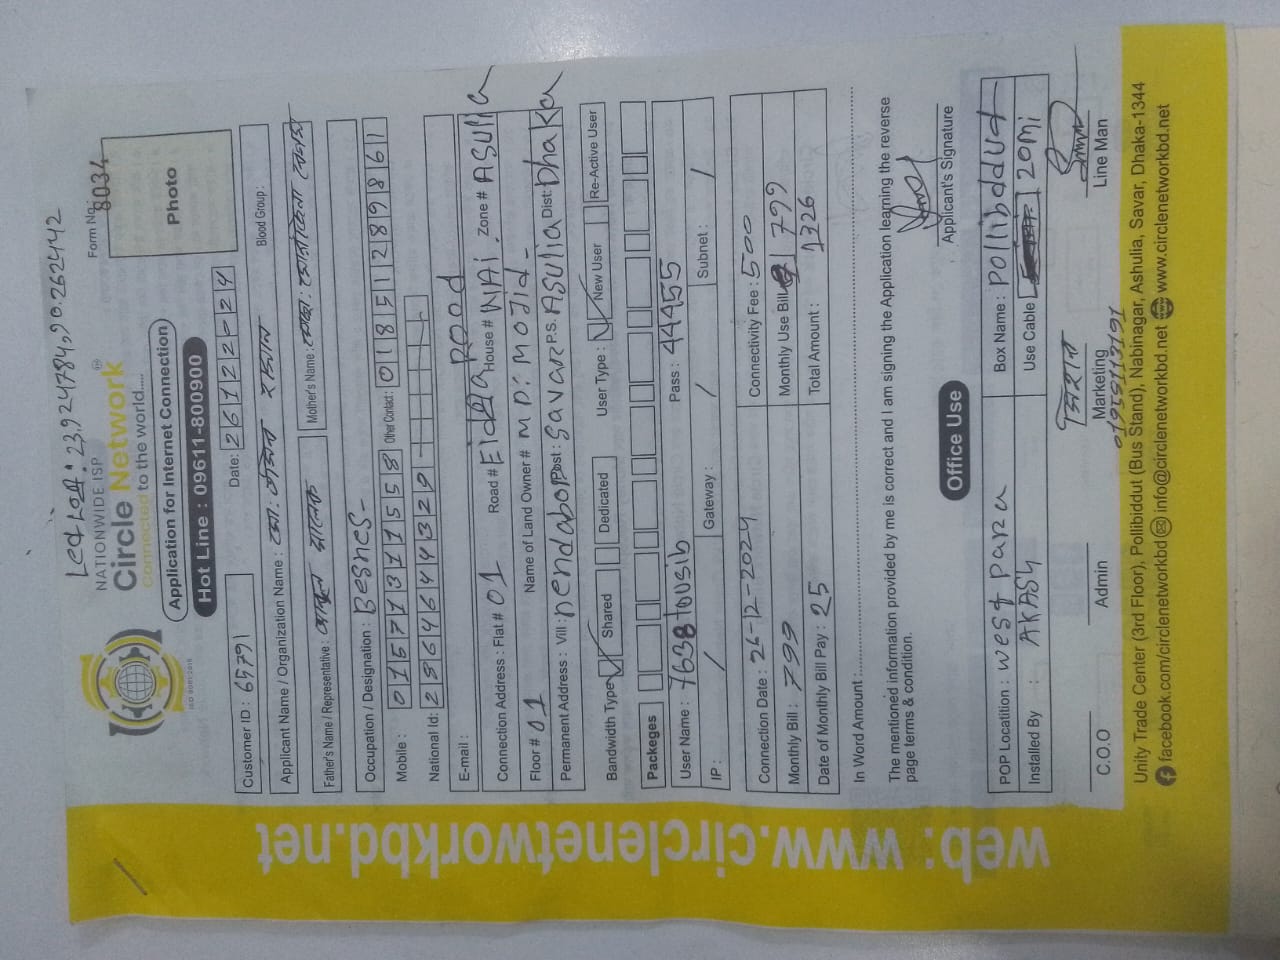 Led 1 প্রান্ত: 23.924784,90.262442
NATIONWIDE ISP
Circle Network
Connected to the world.....
ISO 9001:2015
Form No.: 8034
Photo
Application for Internet Connection
Hot Line : 09611-800900
Customer ID : 65791
Date: 26-12-2024
Applicant Name / Organization Name :
Blood Group :
Father's Name / Representative :
Mother's Name :
Occupation / Designation : Besnes-
Mobile : 01571311558 Other Contact : 01851289861
National Id: 2864644329
E-mail :
Connection Address : Flat # 01 Road # Eidgha Road House # NAi Zone # ASulia
Floor # 01 Name of Land Owner # MD: Mojid-
Permanent Address : Vill : nendabop Post : Savar P.S. ASulia Dist: Dhaka
Bandwidth Type Shared Dedicated User Type : New User Re-Active User
Packeges
User Name : 7638tousib Pass : 4455
IP : / Gateway : / Subnet : /
Connection Date : 26-12-2024 Connectivity Fee : 500
Monthly Bill : 799 Monthly Use Bill 799
Date of Monthly Bill Pay : 25 Total Amount : 1326
In Word Amount :
The mentioned information provided by me is correct and I am signing the Application learning the reverse
page terms & condition.
Applicant's Signature
Office Use
POP Locatition : west para Box Name : Pollibddut
Installed By : AKASH Use Cable 20mi
C.O.O Admin Marketing Line Man
Unity Trade Center (3rd Floor), Pollibiddut (Bus Stand), Nabinagar, Ashulia, Savar, Dhaka-1344
facebook.com/circlenetworkbd info@circlenetworkbd.net www.circlenetworkbd.net
web: www.circlenetworkbd.net